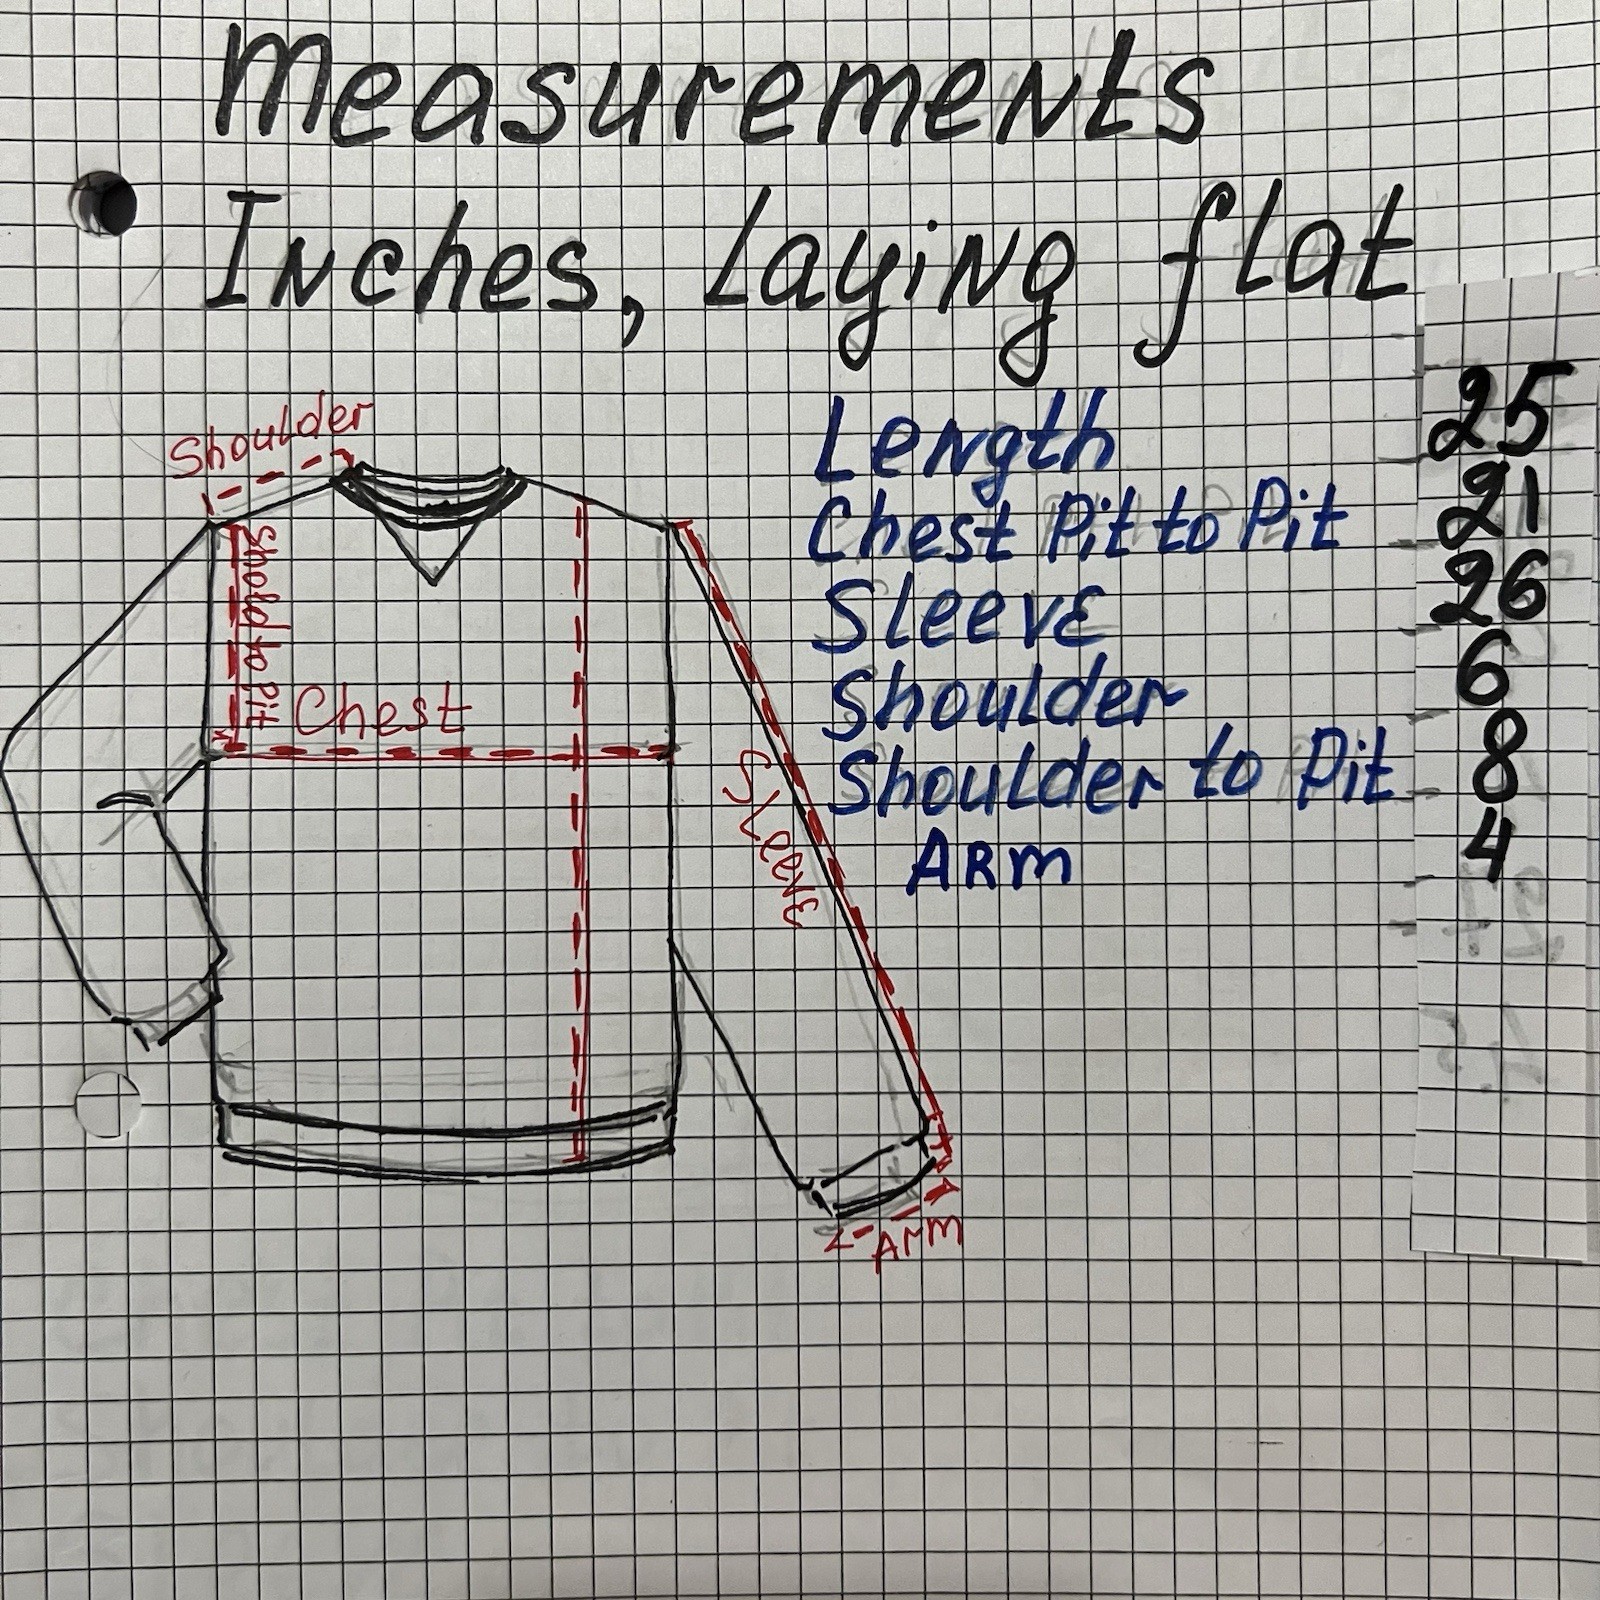 Measurements
Inches, Laying flat
Length 25
Chest Pit to Pit 21
Sleeve 26
Shoulder 6
Shoulder to Pit 8
ARM 4
Shoulder
Should to Pit
Chest
Sleeve
Arm